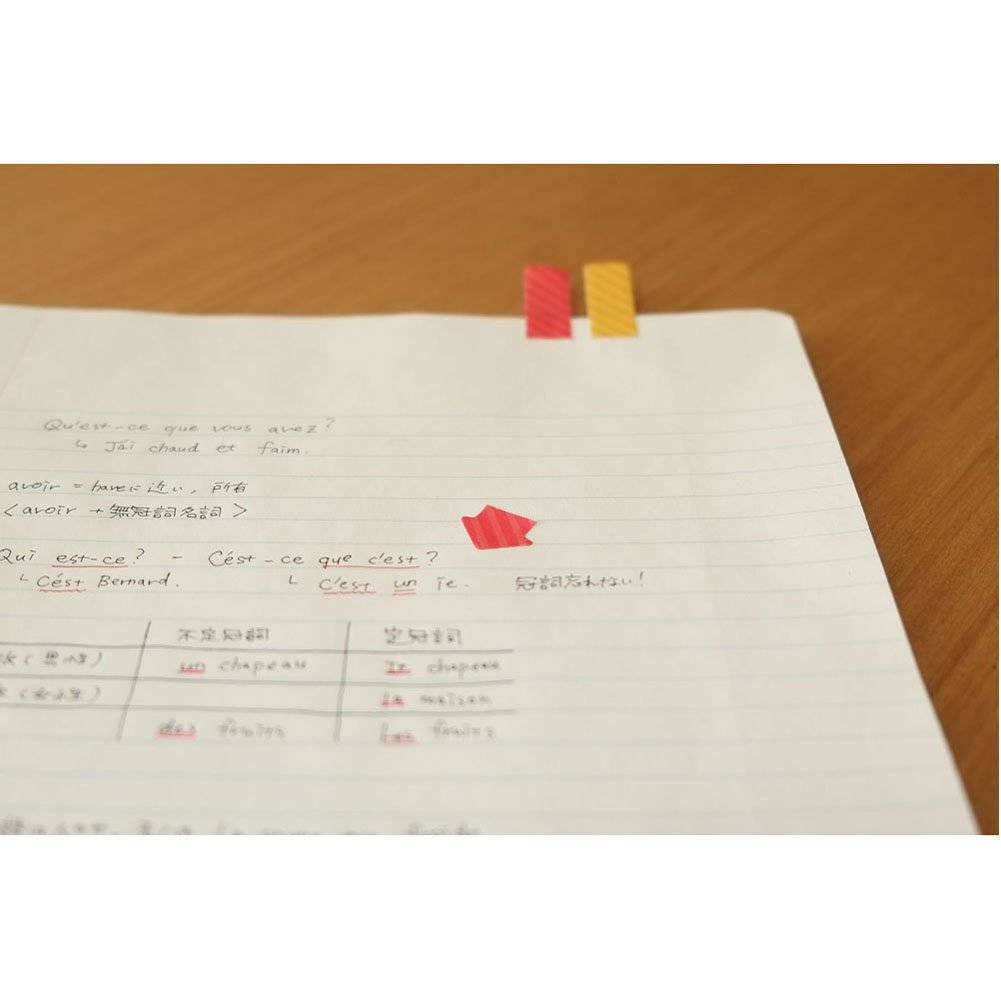 Qu'est-ce que vous avez?
↳ J'ai chaud et faim.
avoir = haveに近い, 所有
<avoir + 無冠詞名詞>
Qui est-ce? - Cést-ce que c'est?
└ Cést Bernard. └ C'est un ie. 冠詞忘れない!
不定冠詞 定冠詞
un chapeau le chapeau
la maison
des les